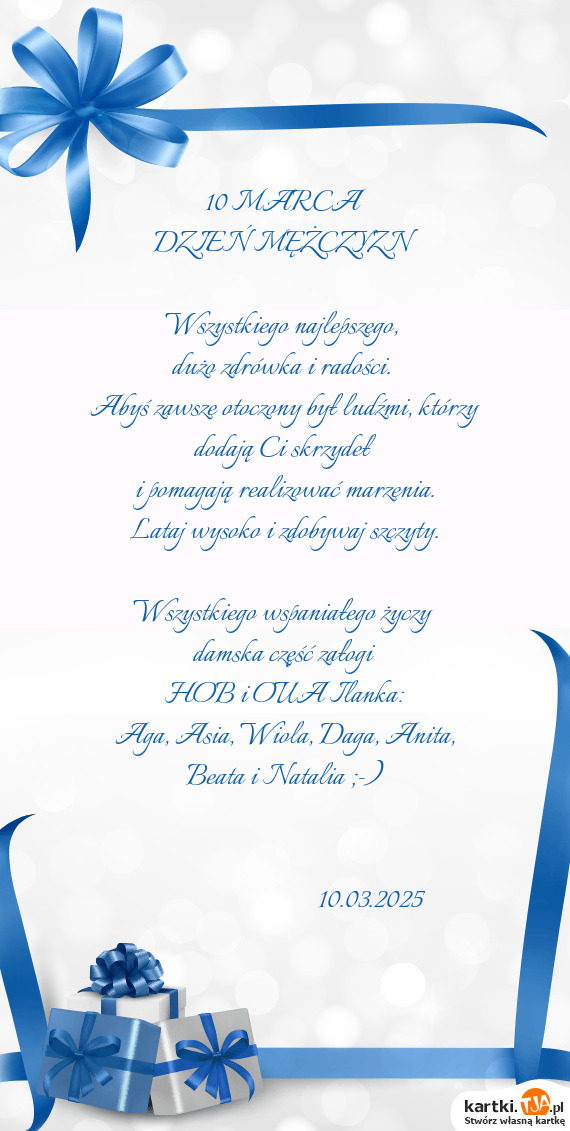 10 MARCA
DZIEŃ MĘŻCZYZN
Wszystkiego najlepszego,
dużo zdrówka i radości.
Abyś zawszę otoczony był ludźmi, którzy
dodają Ci skrzydeł
i pomagają realizować marzenia.
Lataj wysoko i zdobywaj szczyty.
Wszystkiego wspaniałego życzy
damska część załogi
HOB i OUA Ilanka:
Aga, Asia, Wiola, Daga, Anita,
Beata i Natalia ;-)
10.03.2025
kartki.TJA.pl
Stwórz własną kartkę